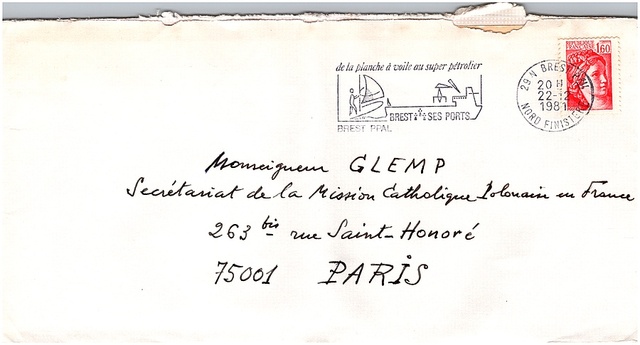 de la planche à voile au super pétrolier
BREST SES PORTS
BREST PPAL
29 N BREST
20 H
22-12
1981
NORD FINISTERE
REPUBLIQUE FRANCAISE
1,60
Monseigneur GLEMP
Secrétariat de la Mission Catholique Polonain en France
263 bis rue Saint-Honoré
75001 PARIS